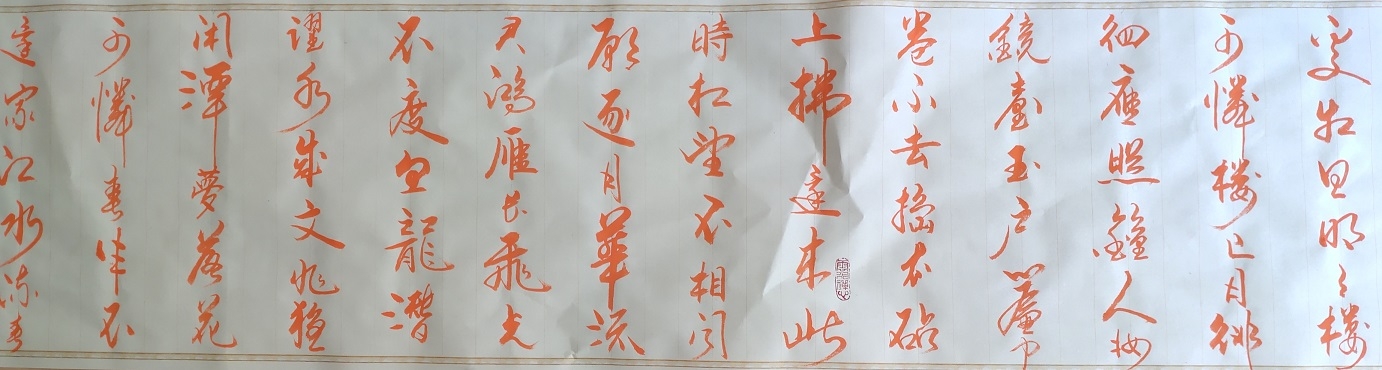 處相思明月樓
可憐樓上月徘
徊應照離人妝
鏡臺玉户簾中
卷不去擣衣砧
上拂還來此
時相望不相聞
願逐月華流
君鴻雁長飛光
不度魚龍潛
躍水成文
閑潭夢落花
可憐春半不
還家江水流春